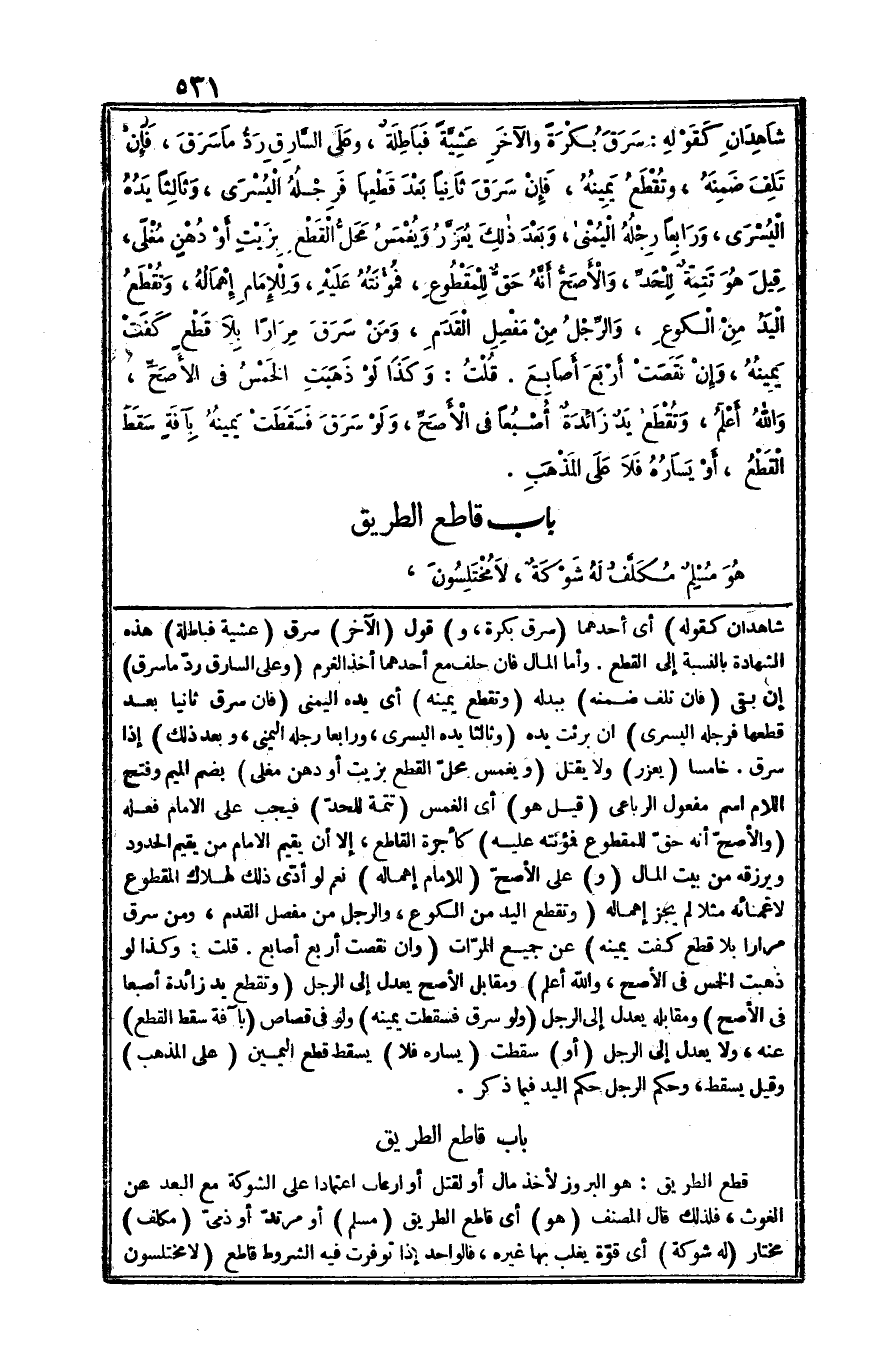 ٥٣١
شَاهِدَانِ كَقَوْلِهِ : سَرَقَ بُكْرَةً والآخَرِ عَشِيَّةً فَبَاطِلَةٌ ، وعَلَى السَّارِقِ رَدُّ مَاسَرَقَ ، فَإِنْ
تَلِفَ ضَمِنَهُ ، وتُقْطَعُ يَمِينُهُ ، فَإِنْ سَرَقَ ثَانِيًا بَعْدَ قَطْعِهَا فَرِجْلُهُ الْيُسْرَى ، وَثَالِثًا يَدُهُ
الْيُسْرَى ، وَرَابِعًا رِجْلُهُ الْيُمْنَى ، وَبَعْدَ ذٰلِكَ يُعَزَّرُ وَيُغْمَسُ مَحَلُّ الْقَطْعِ بِزَيْتٍ أَوْ دُهْنٍ مُغْلًى ،
قِيلَ هُوَ تَتِمَّةٌ لِلْحَدِّ ، وَالْأَصَحُّ أَنَّهُ حَقٌّ لِلْمَقْطُوعِ ، فَمُؤْنَتُهُ عَلَيْهِ ، وَلِلْإِمَامِ إِهْمَالُهُ ، وَتُقْطَعُ
الْيَدُ مِنْ الْكُوعِ ، وَالرِّجْلُ مِنْ مَفْصِلِ الْقَدَمِ ، وَمَنْ سَرَقَ مِرَارًا بِلَا قَطْعٍ كَفَتْ
يَمِينُهُ ، وَإِنْ نَقَصَتْ أَرْبَعَ أَصَابِعَ . قُلْتُ : وَكَذَا لَوْ ذَهَبَتِ الخَمْسُ فى الأَصَحِّ ،
وَاللهُ أَعْلَمُ ، وَتُقْطَعُ يَدٌ زَائِدَةٌ أُصْبُعًا فى الْأَصَحِّ ، وَلَوْ سَرَقَ فَسَقَطَتْ يَمِينُهُ بِآفَةٍ سَقَطَ
الْقَطْعُ ، أَوْ يَسَارُهُ فَلَا عَلَى المَذْهَبِ .
باب قاطع الطريق
هُوَ مُسْلِمٌ مُكَلَّفٌ لَهُ شَوْكَةٌ ، لَا مُخْتَلِسُونَ ،
شاهدان كقوله ) أى أحدهما ( سرق بكرة ، و ) قول ( الآخر ) سرق ( عشية فباطلة ) هذه
الشهادة بالنسبة إلى القطع . وأما المال فان حلف مع أحدهما أخذ الغرم ( وعلى السارق ردّ ماسرق )
إن بقى ( فان تلف ضمنه ) ببدله ( وتقطع يمينه ) أى يده اليمنى ( فان سرق ثانيا بعد
قطعها فرجله اليسرى ) ان برئت يده ( وثالثا يده اليسرى ، ورابعا رجله اليمنى ، وبعد ذلك ) إذا
سرق . خامسا ( يعزر ) ولا يقتل ( ويغمس محلّ القطع بزيت أو دهن مغلى ) بضم الميم وفتح
اللام اسم مفعول الرباعى ( قيل هو ) أى الغمس ( تتمة للحدّ ) فيجب على الامام فعله
( والأصحّ أنه حقّ للمقطوع فمؤنته عليه ) كأجرة القاطع ، إلا أن يقيم الامام من يقيم الحدود
ويرزقه من بيت المال ( و ) على الأصحّ ( للامام إهماله ) نعم لو أدّى ذلك لهلاك المقطوع
لاغمائه مثلا لم يجز إهماله ( وتقطع اليد من الكوع ، والرجل من مفصل القدم ، ومن سرق
مرارا بلا قطع كفت يمينه ) عن جميع المرّات ( وان نقصت أربع أصابع . قلت : وكذا لو
ذهبت الخمس فى الأصح ، والله أعلم ) ومقابل الأصح يعدل إلى الرجل ( وتقطع يد زائدة أصبعا
فى الأصح ) ومقابله يعدل إلى الرجل ( ولو سرق فسقطت يمينه ) ولو فى قصاص ( بآفة سقط القطع )
عنه ، ولا يعدل إلى الرجل ( أو ) سقطت ( يساره فلا ) يسقط قطع اليمين ( على المذهب )
وقيل يسقط ، وحكم الرجل حكم اليد فيما ذكر .
باب قاطع الطريق
قطع الطريق : هو البروز لأخذ مال أو لقتل أو ارعاب اعتمادا على الشوكة مع البعد عن
الغوث ، فلذلك قال المصنف ( هو ) أى قاطع الطريق ( مسلم ) أو مرتدّ أو ذمىّ ( مكلف )
مختار ( له شوكة ) أى قوّة يغلب بها غيره ، فالواحد إذا توفرت فيه الشروط قاطع ( لا مختلسون